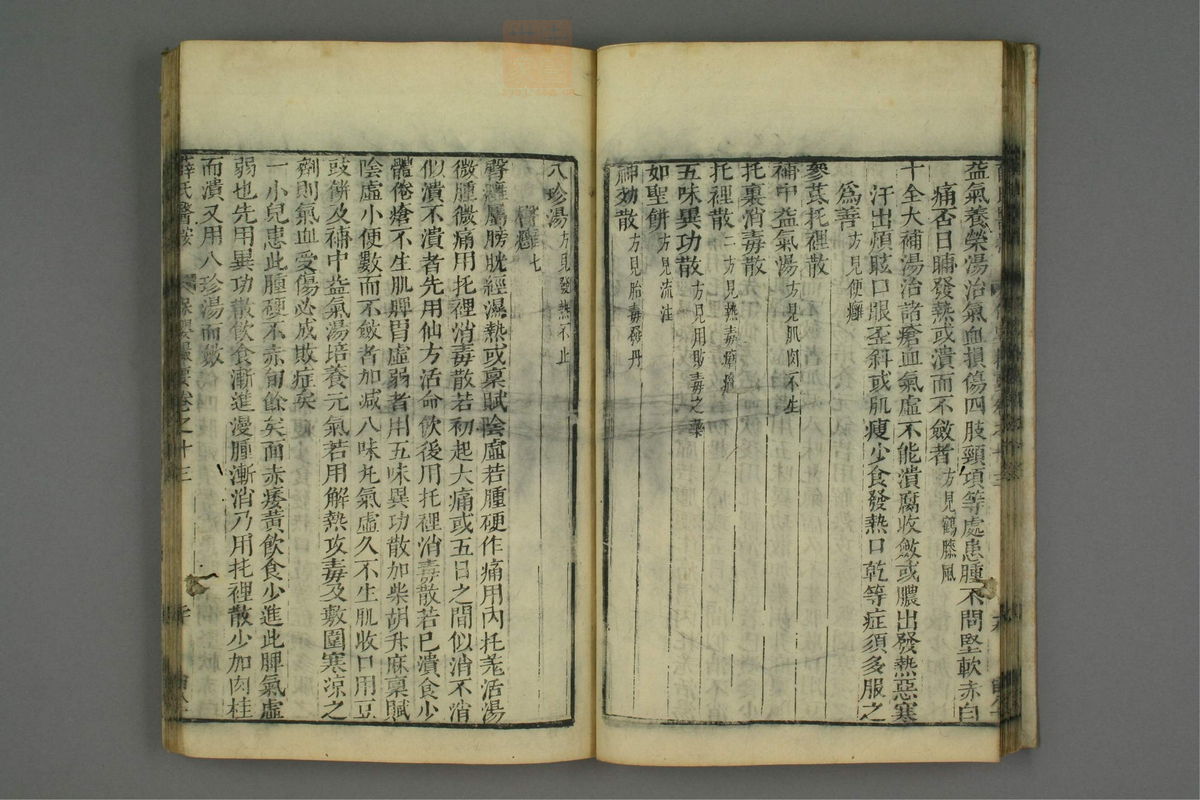 益氣養榮湯治氣血損傷四肢頸項等處患腫不問堅軟赤白
痛否日晡發熱或潰而不斂者方見鶴膝風
十全大補湯治諸瘡血氣虛不能潰腐收斂或膿出發熱惡寒
汗出煩眩口眼歪斜或肌瘦少食發熱口乾等症須多服之
為善方見便癰
參芪托裡散
補中益氣湯方見肌肉不生
托裏消毒散
托裡散二方見熱毒瘡瘍
五味異功散方見用敗毒之藥
如聖餅方見流注
神効散方見胎毒發丹
八珍湯方見發熱不止
臀癰七
臀癰屬膀胱經濕熱或稟賦陰虛若腫硬作痛用內托羗活湯
微腫微痛用托裡消毒散若初起大痛或五日之間似消不消
似潰不潰者先用仙方活命飲後用托裡消毒散若已潰食少
體倦瘡不生肌脾胃虛弱者用五味異功散加柴胡升麻稟賦
陰虛小便數而不斂者加减八味丸氣虛久不生肌收口用豆
豉餅及補中益氣湯培養元氣若用解熱攻毒及敷圍寒凉之
劑則氣血受傷必成敗症矣
一小兒患此腫硬不赤旬餘矣面赤痿黃飲食少進此脾氣虛
弱也先用異功散飲食漸進漫腫漸消乃用托裡散少加肉桂
而潰又用八珍湯而斂
薛氏醫按 保嬰撮要卷之十三